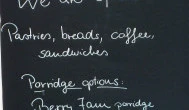 We are
Pastries, breads, coffee,
sandwiches
Porridge options:
Berry Jam porridge